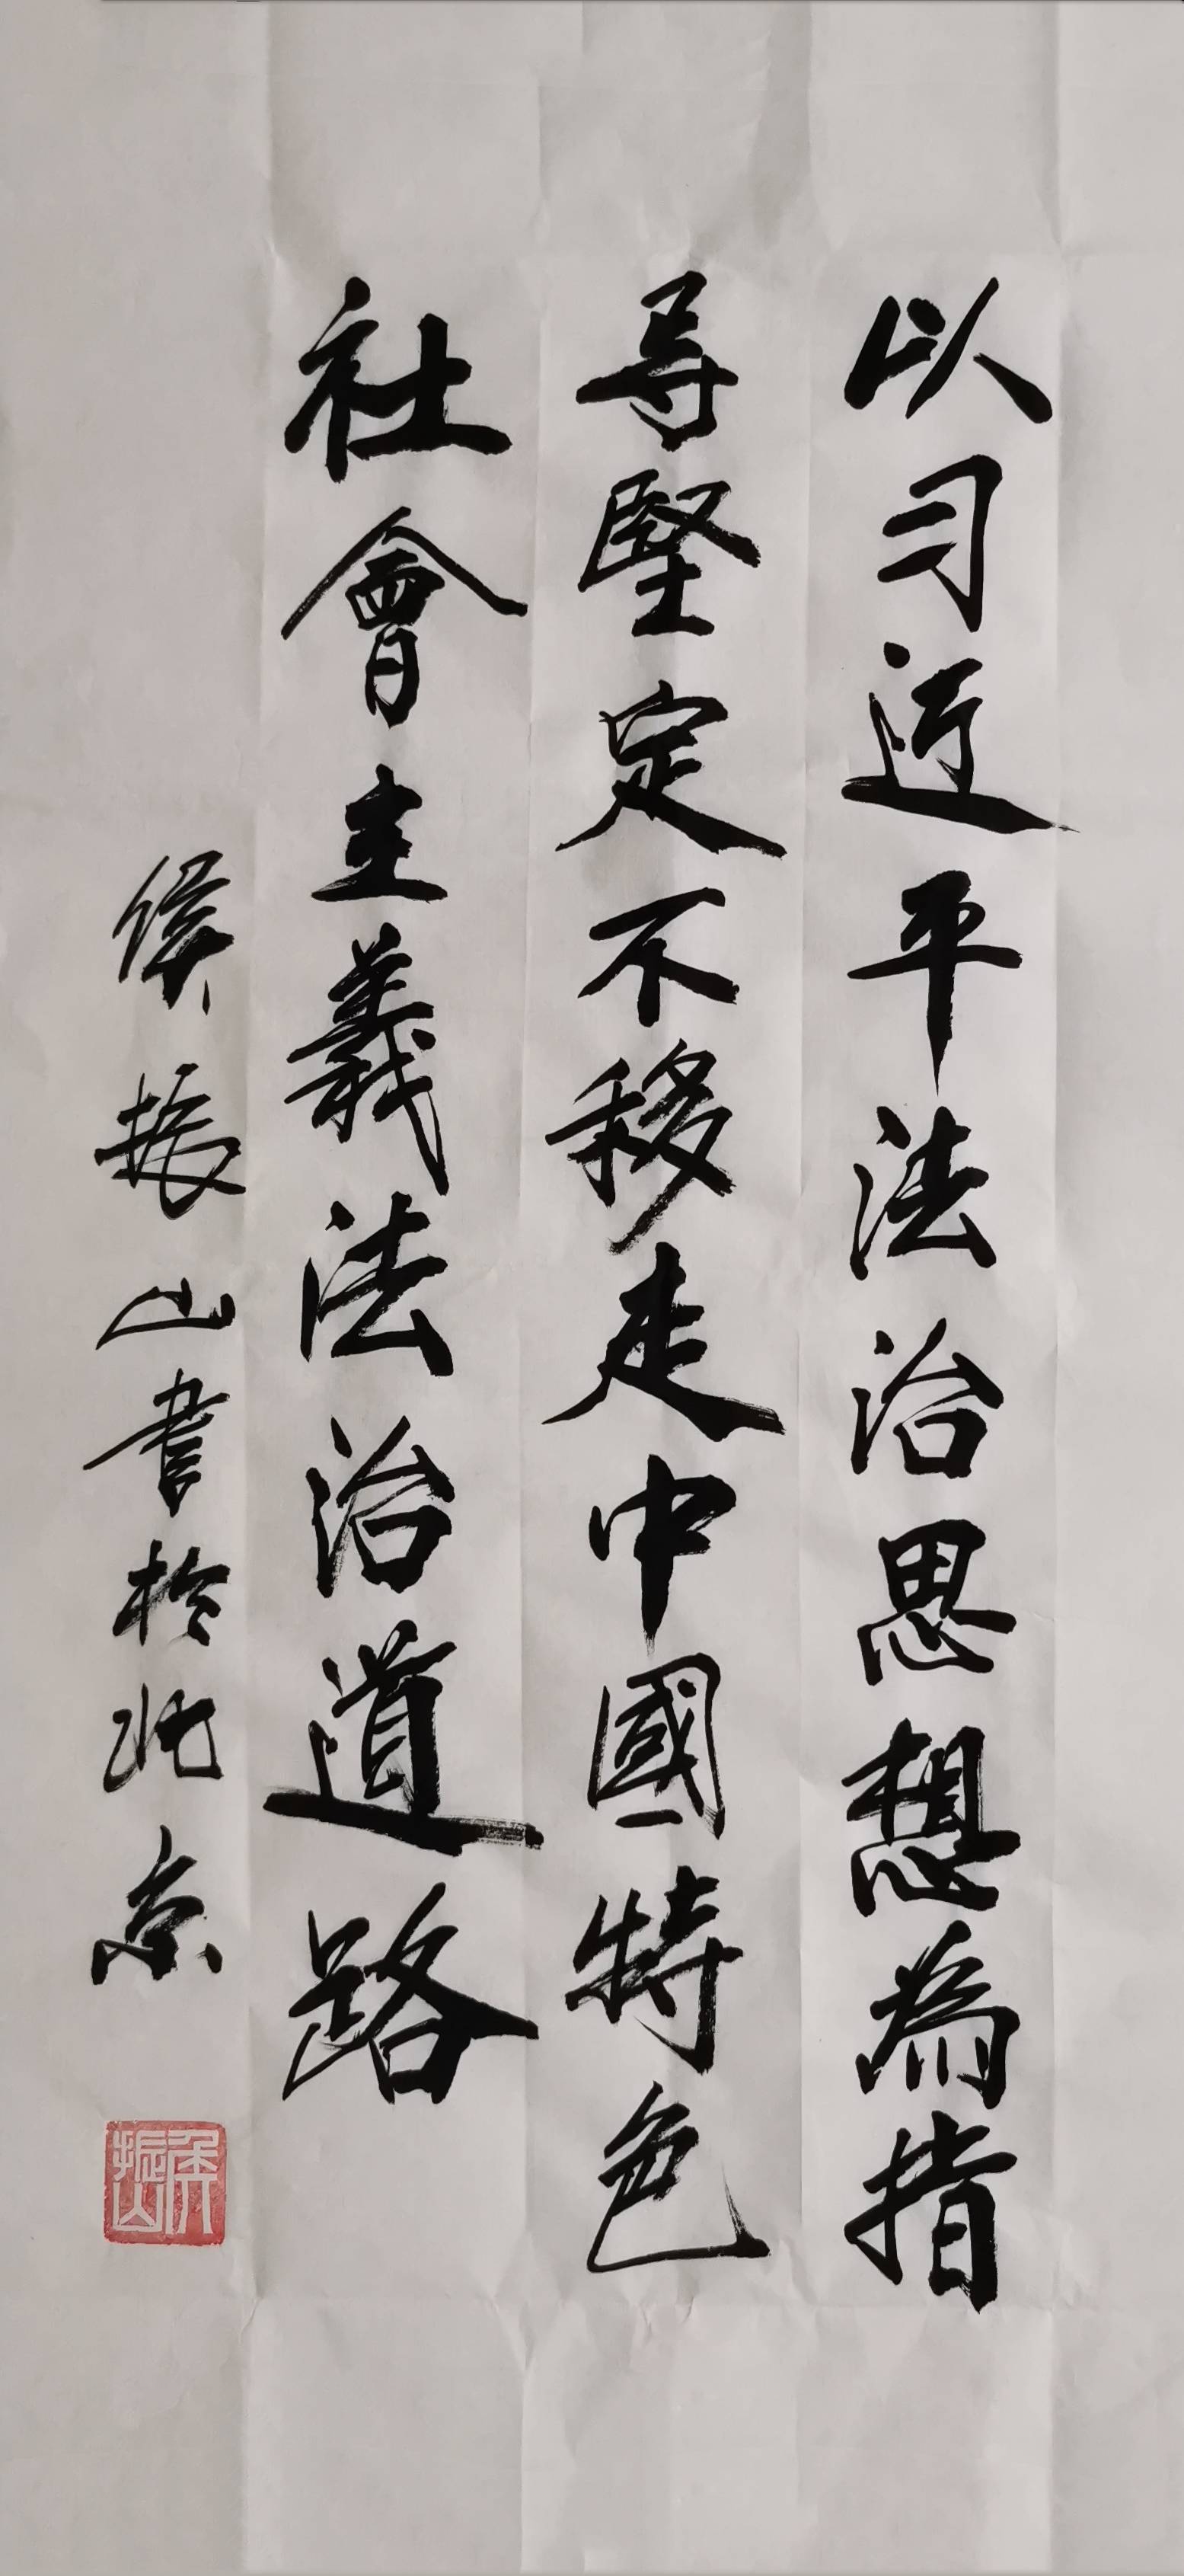 以习近平法治思想為指
导堅定不移走中國特色
社會主義法治道路
侯振山書於北京
侯振山